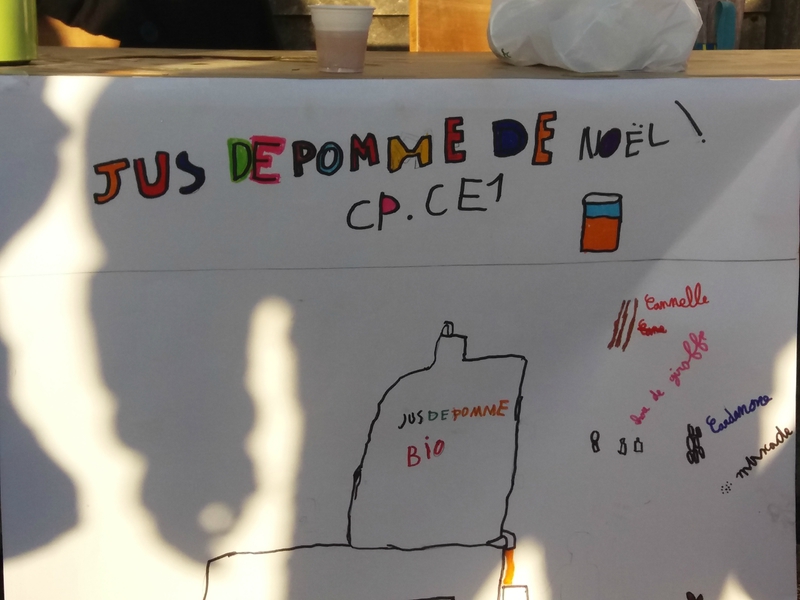 JUS DE POMME DE NOËL !
CP.CE1
JUS DE POMME
Bio
Cannelle
de girofle
Cardamome
muscade